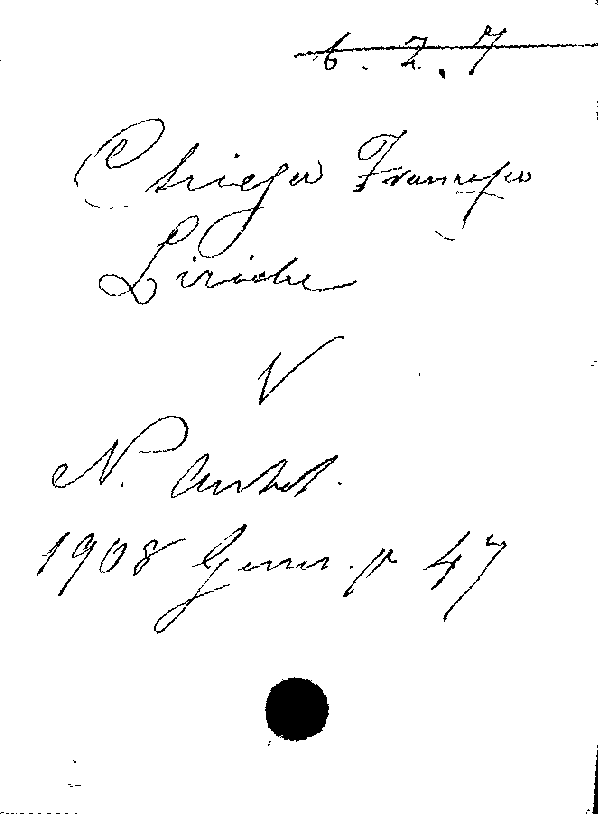 6.2.7
Francesco
Liriche
V
N. Antol.
1908 Genn. p 47